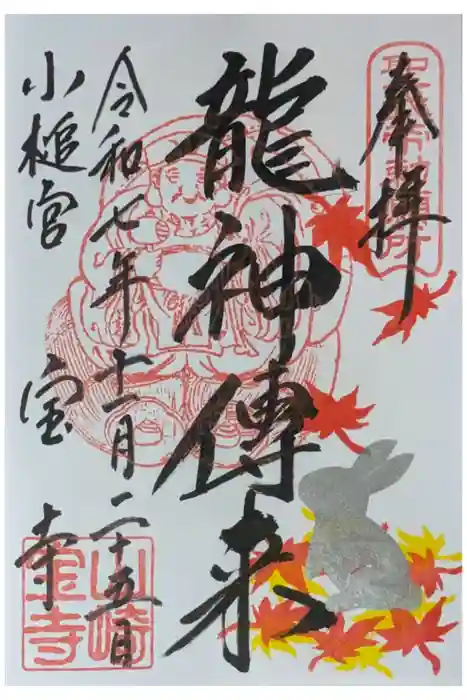 奉拝
龍神傳来
令和七年十一月二十五日
小槌宮 宝寺
山崎
宝寺